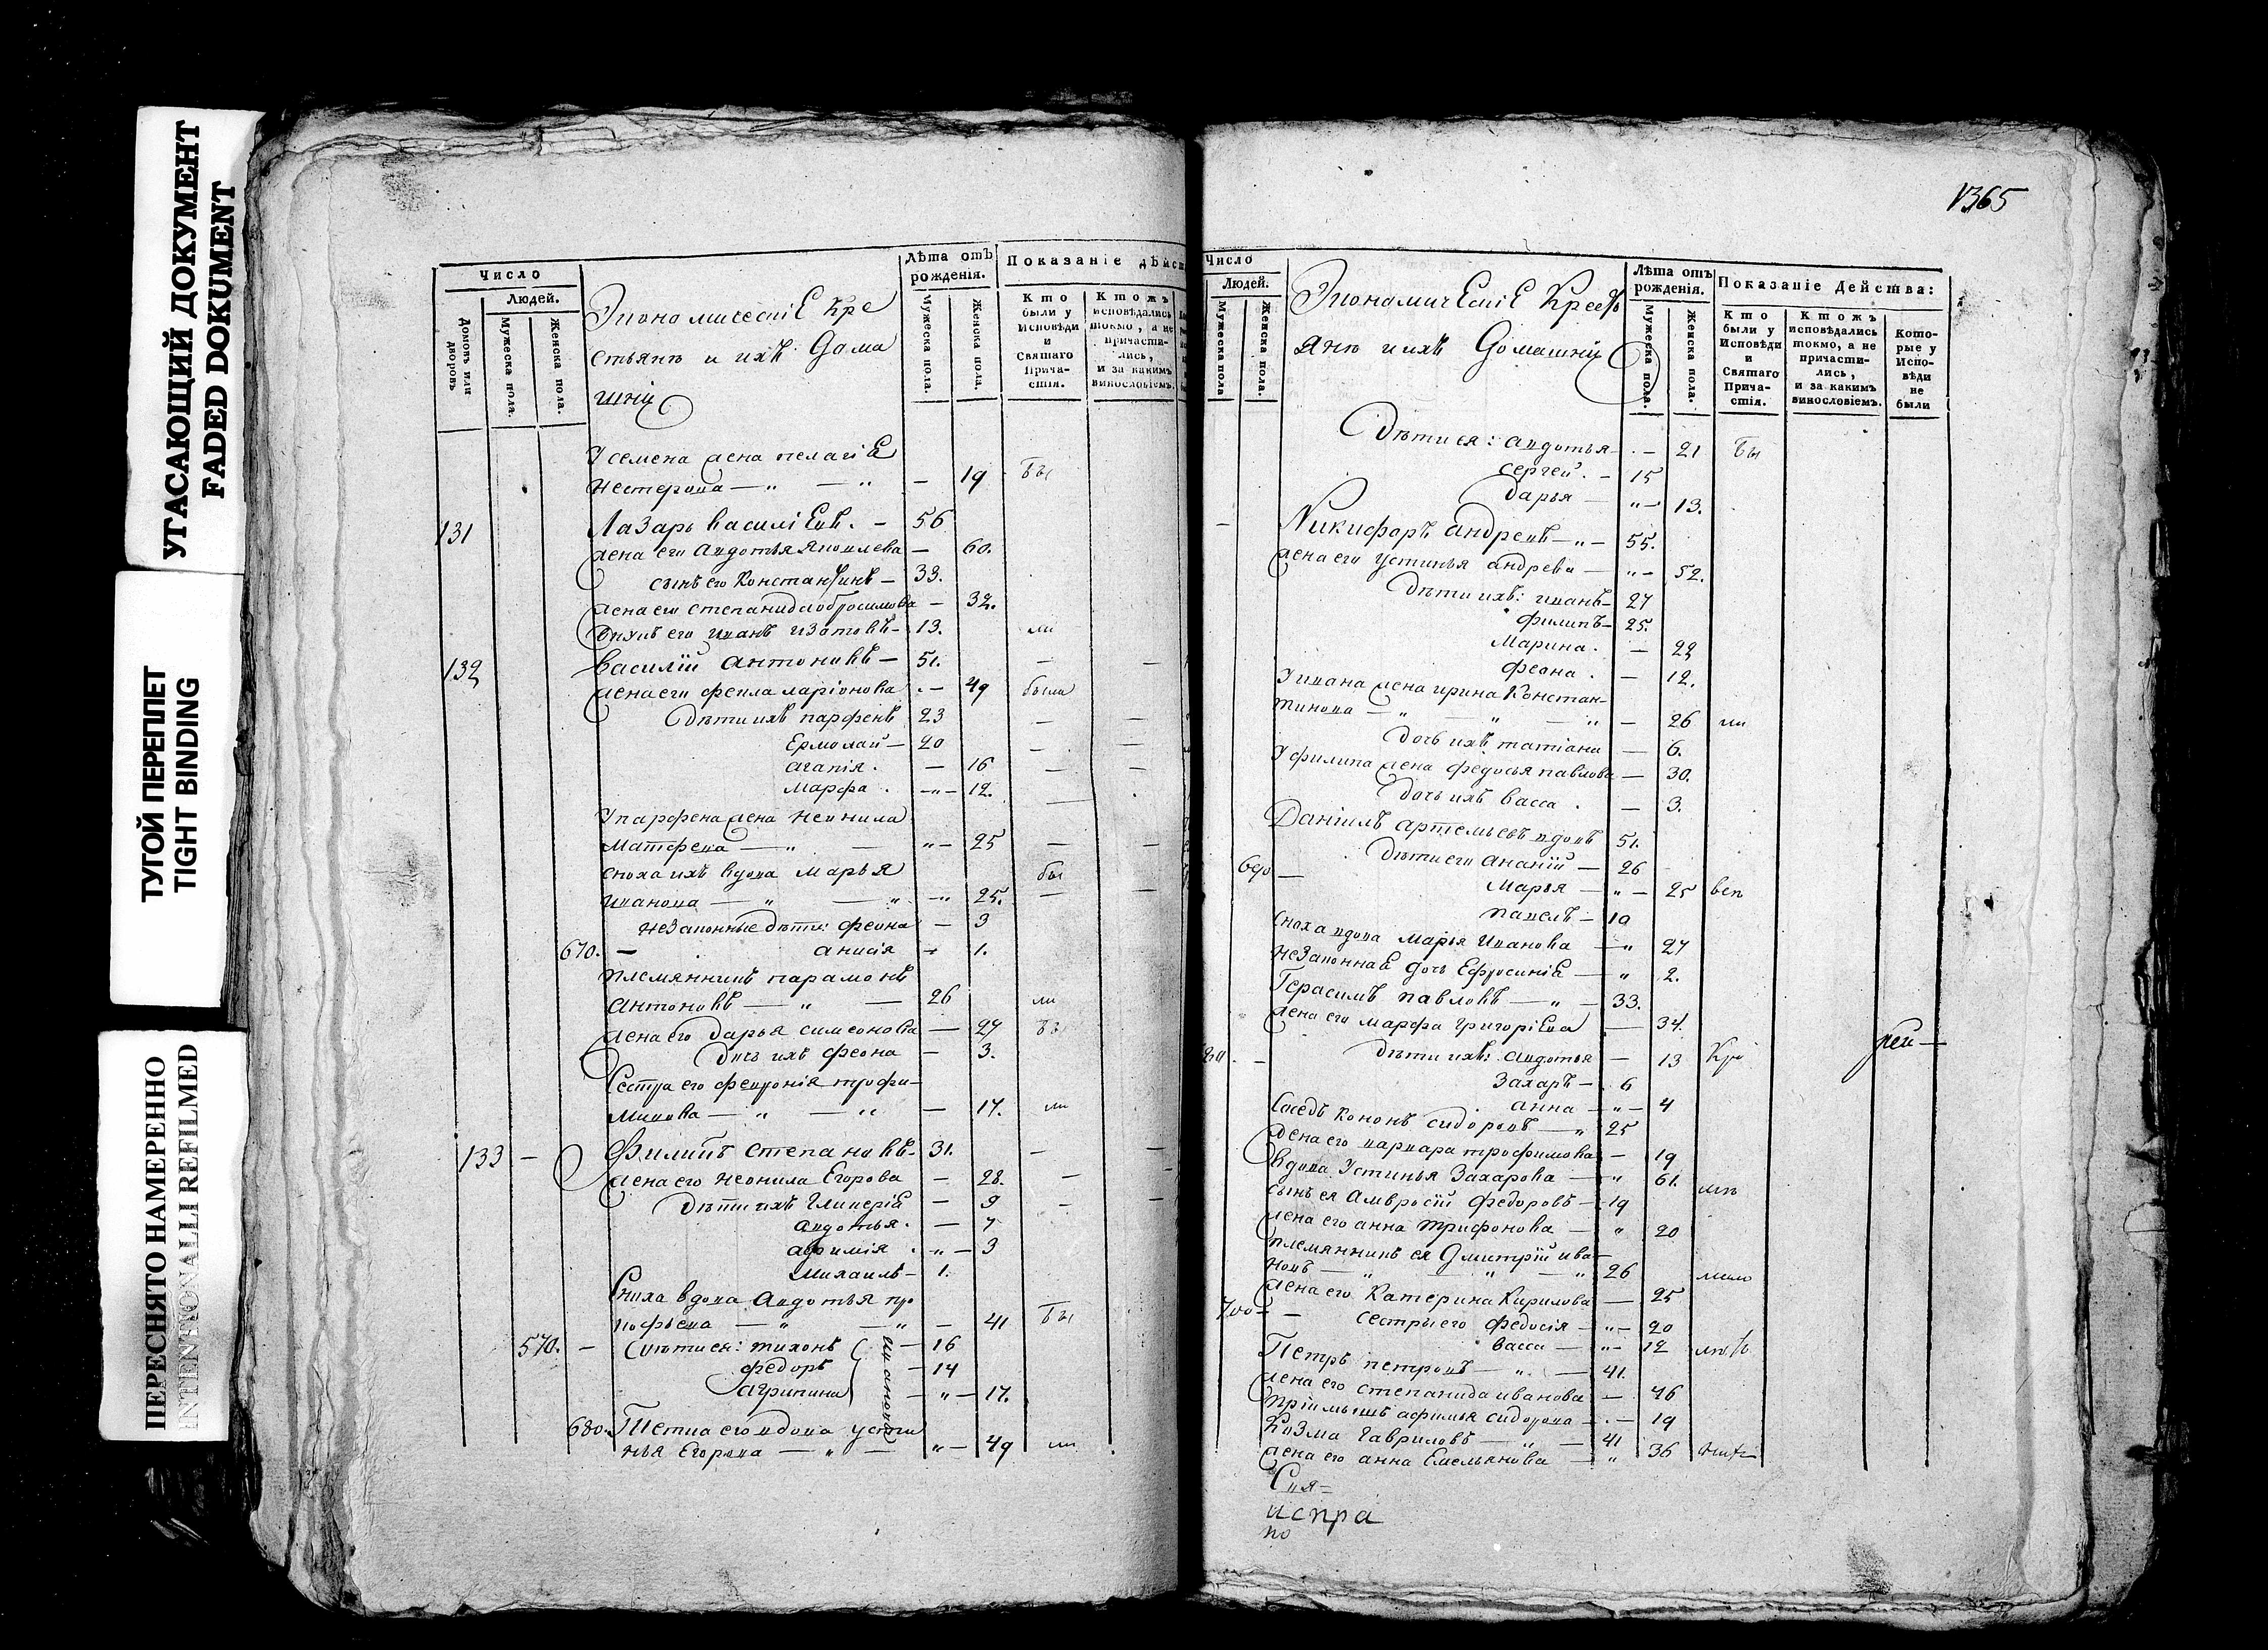 УГАСАЮЩИЙ ДОКУМЕНТ
FADED DOKUMENT
ТУГОЙ ПЕРЕПЛЕТ
TIGHT BINDING
ПЕРЕСНЯТО НАМЕРЕННО
INTENTIONALLI REFILMED
Число
Людей.
Домовъ или дворовъ
Мужеска пола.
Женска пола.
Экономическіе Кре
стьянѣ и ихѣ Дома
шніи
Лѣта отъ рожденія.
Мужеска пола.
Женска пола.
Показаніе дѣйст
Кто были у Исповѣди и Святаго Прича-стія.
Ктожъ исповѣдались токмо, а не причасти-лись, и за какимъ винословіемъ.
У семена жена пелагіЕ
Нестерова — „ — „ — 19 бы
131 Лазарь василіЕвъ. — 56
жена его авдотья яковлева — 60.
сынъ его Константинъ — 33.
жена его степанида абросимова — 32.
иванъ — 13. ли
132 василій антоновъ — 51. — —
жена его фекла ларіонова . — 49 были
Дѣти ихъ парфенъ 23 — —
Ермолай — 20 — —
агапія . — 16 — —
Марфа . — „ — 12. —
У парфена жена неонила
Матфева — „ — „ — 25 — —
сноха ихъ вдова марья бы
иванова — „ — „ — „ 25. — —
незаконные дѣти: феона — 3
670. — анисія — 1.
племянникъ парамонъ
антоновъ — „ — 26 ли
жена его дарья симеонова — 27 бы
дочь ихъ феона — 3.
Сестра его февронія трофи-
мивова — „ — „ — 17. ли
133 — Филипъ степановъ — 31. — —
жена его неонила Егорова — 28. —
Дѣти ихъ гликеріЕ — 9 — —
авдотья. — 7
афимія . „ — 3
михаилъ — 1.
Сноха вдова авдотья про
кофьева — „ — „ — 41 бы
570. — Дѣти ея: тихонъ — 16
федоръ — 14
агрипина — „ — 17.
ивановы
680. Тетка его вдова усти
нья Егорова — „ — „ — 49 ли
1365
Число
Людей.
Мужеска пола
Женска пола.
ЭкономичЕскіЕ Крест
янѣ и ихѣ Домашніи
Лѣта отъ рожденія.
Мужеска пола.
Женска пола.
Показаніе Действа:
Кто были у Исповѣди и Святаго Прича-стія.
Ктожъ исповѣдались токмо, а не причасти-лись, и за какимъ винословіемъ.
Кото-рые у Испо-вѣди не были
Дѣти ея: авдотья . — 21 бы
сергей . — 15
дарья — „ — 13.
Никифоръ андреевъ — „ — 55.
жена его устинья андрева — „ — 52.
Дѣти ихъ: иванъ — 27
филипъ — 25.
Марина . — 22
феона . — 12.
У ивана жена ирина Констан-
тинова — „ — „ — „ — 26 ли
Дочь ихъ татіана — 6.
У филипа жена федосья павлова — 30.
Дочь ихъ васса . — 3.
Даніилъ артемьевъ вдовъ 51.
Дѣти его ананій — 26
690 — марья — „ — 25
павелъ — 10
сноха вдова марья иванова — „ 27
незаконнаЕ дочь ЕфросиніЕ — „ 2.
Герасимъ павловъ — „ — 33.
жена его марфа григоріЕва — 34.
Дѣти ихъ: авдотья — 13
захаръ — 6
анна — „ — 4
Соседъ кононъ сидоровъ — „ 25
жена его варвара трофимова — 19
вдова устинья захарова — „ 61.
сынъ ея амвросій федоровъ — 19
жена его анна трифонова — „ 20
племянникъ ея Дмитрій ива-
новъ — „ — „ — „ 26
жена его катерина кирилова — 25
700 — сестры его федосія — „ — 20
васса — „ — 12
Петръ петровъ — „ — 41.
жена его степанида иванова — 46
пріимышъ афимья сидорова — . — 19
козма гавриловъ — „ — 41
жена его анна Емельянова — „ 36
Свя-
испра
по